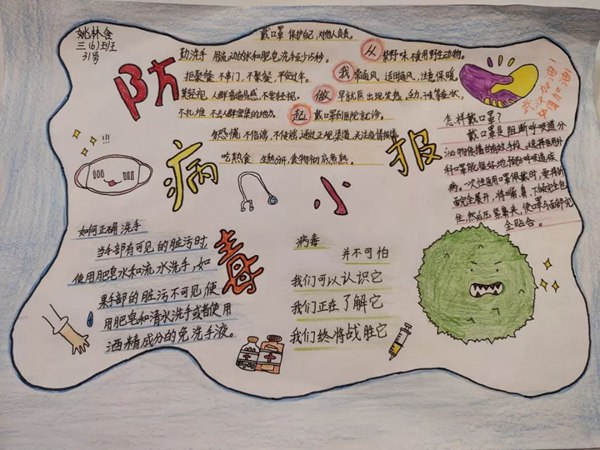 姚林含
三(6)班
31号
戴口罩 保护自己,对他人负责。
勤洗手 用流动的水和肥皂洗手至少15秒。
从 禁野味 不食用野生动物。
拒聚餐 不串门,不聚餐,平安过年。
我 常通风,适时通风,注意保暖。
莫轻视 人群普遍易感,不要轻视。
做 早就医 出现发热,乏力,干咳等症状,
不扎堆 不去人群密集的地方。
起 戴口罩到医院就诊。
勿恐慌 不信谣,不传谣,通过正规渠道,关注疫情报道
吃熟食 生熟分开,食物彻底煮熟。
防
病
毒
小
报
武汉加油
中国加油
怎样戴口罩?
戴口罩是阻断呼吸道分
泌物传播的有效手段,选择医用外
科口罩能很好地预防呼吸道疾
病。一次性医用口罩佩戴时,要将折
面完全展开,将嘴、鼻、下颌完全包
住,然后压紧鼻夹,使口罩与面部完
全贴合。
如何正确洗手
当手部有可见的脏污时,
使用肥皂水和流水洗手,如
果手部的脏污不可见,使
用肥皂和清水洗手或者使用
酒精成分的免洗手液。
病毒
并不可怕
我们可以认识它
我们正在了解它
我们终将战胜它